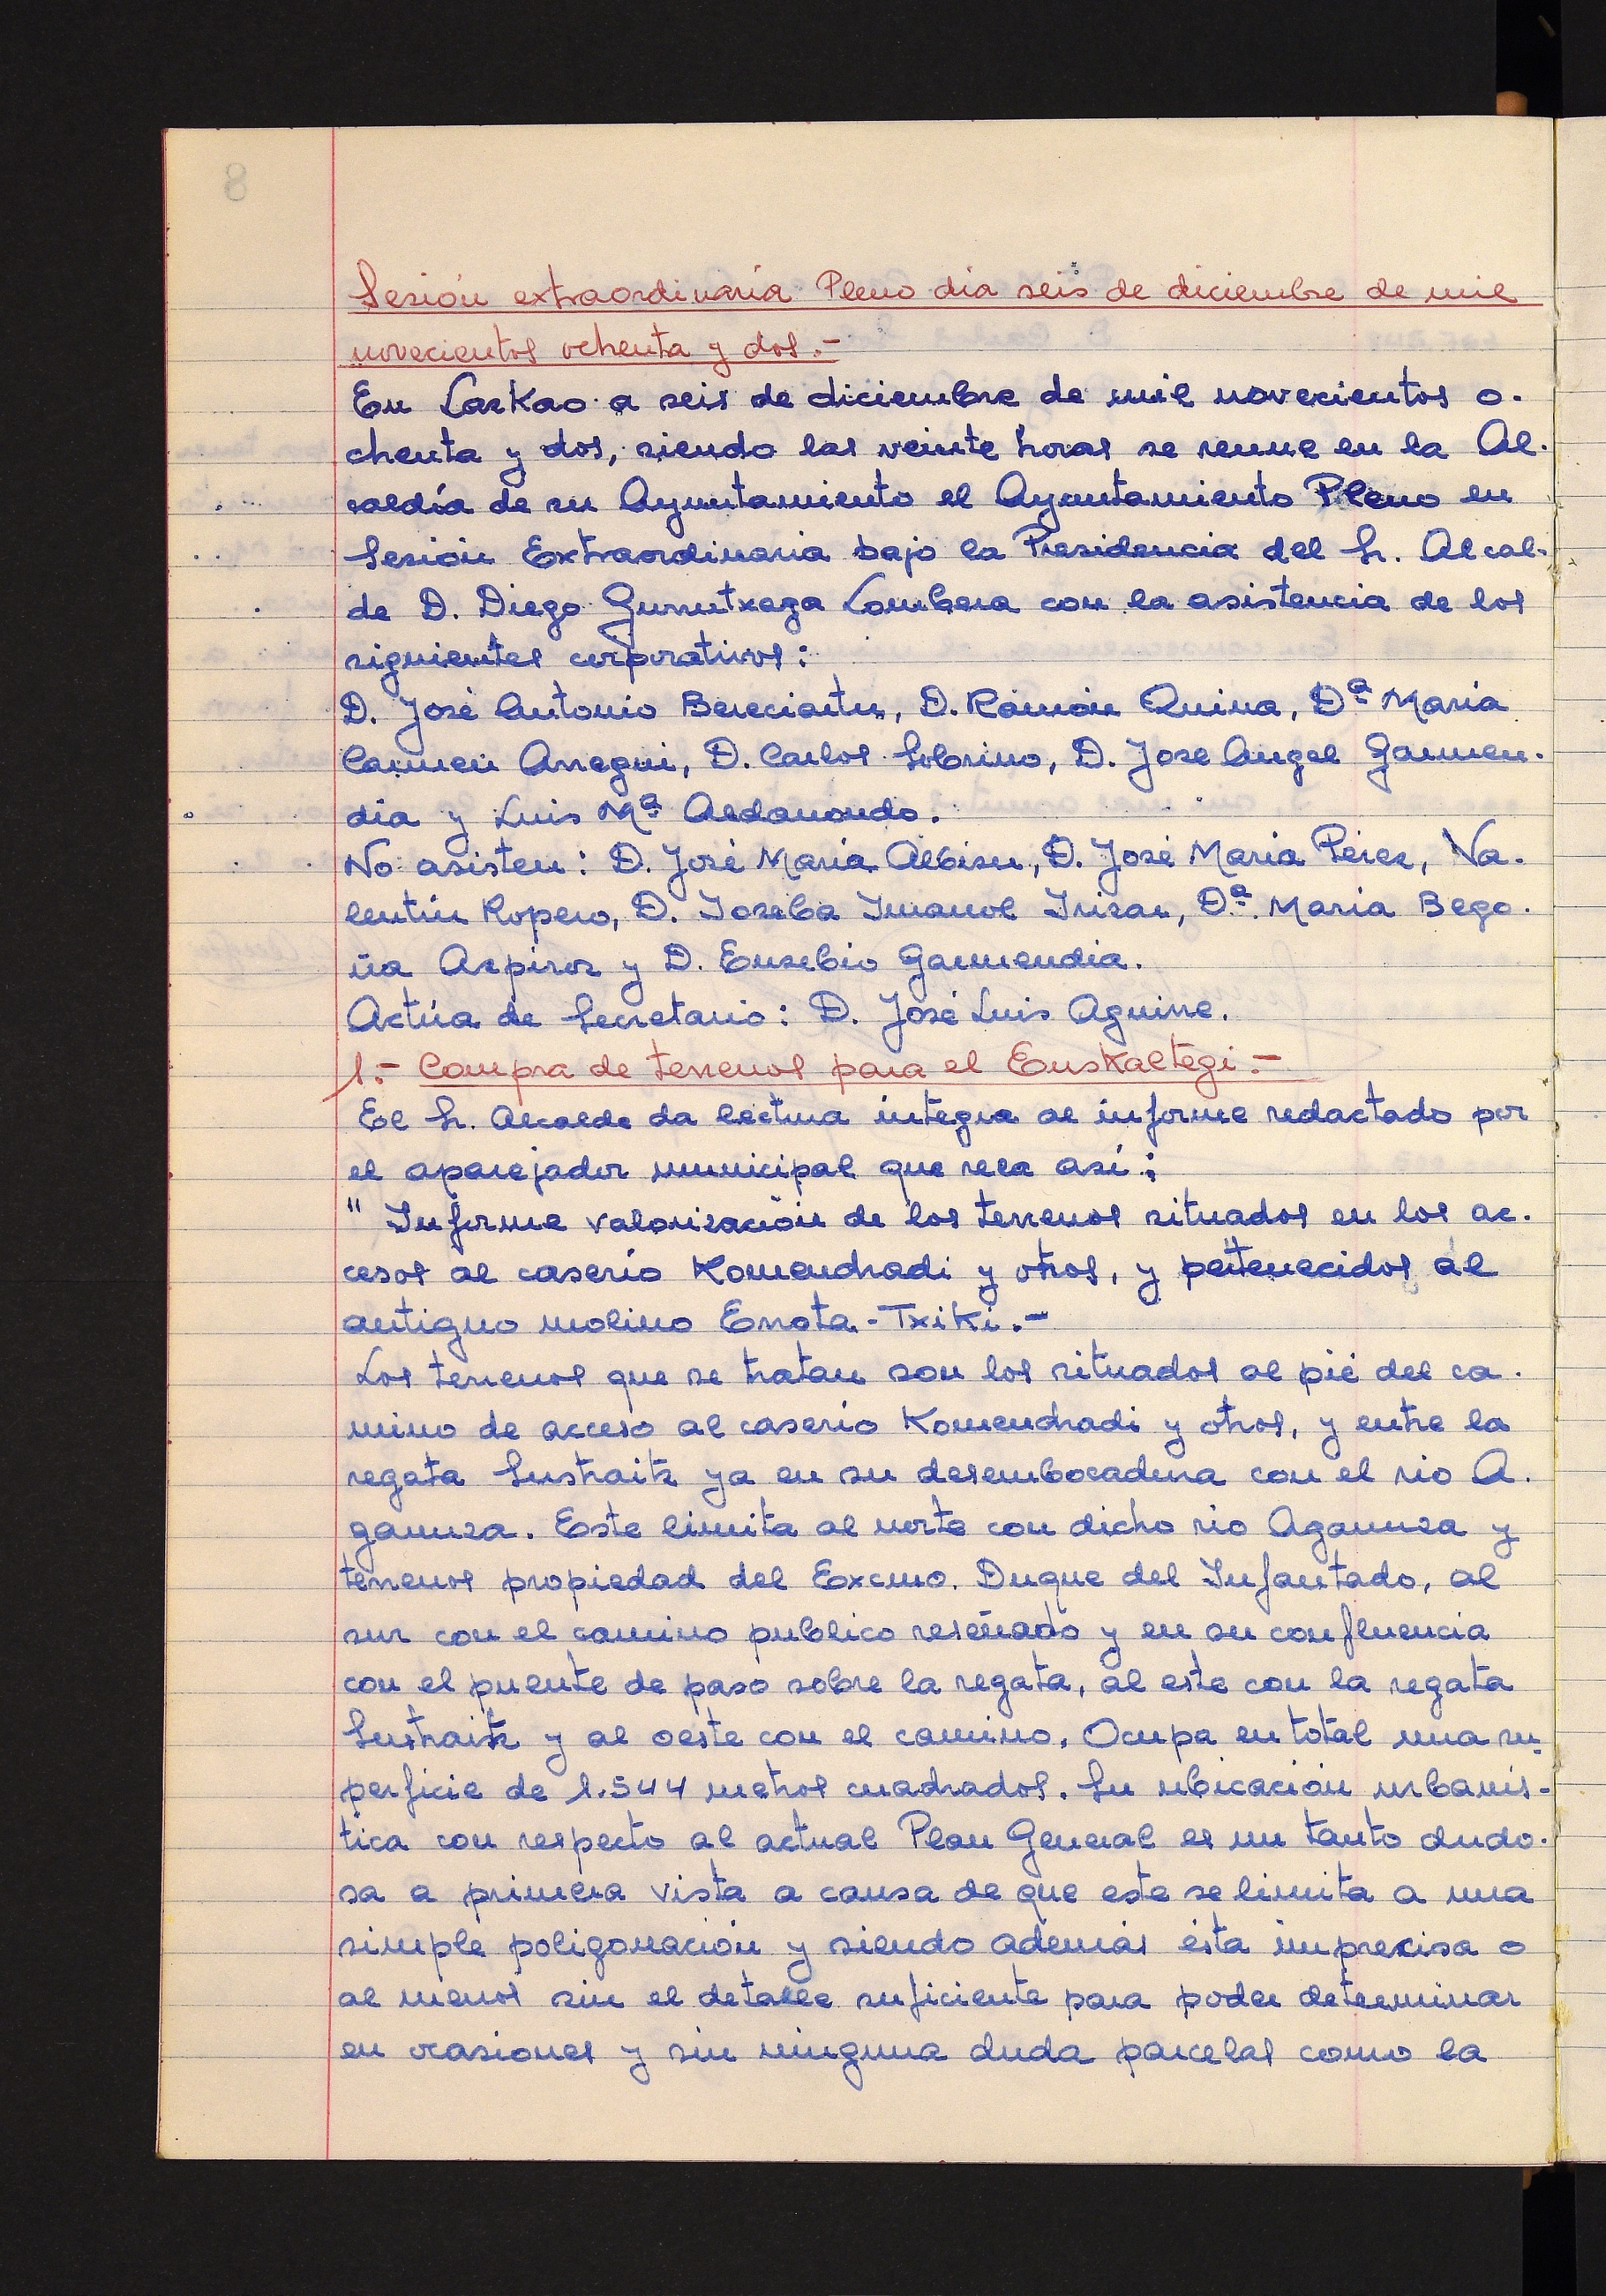 Sesión extraordinaria Pleno dia seis de diciembre de mil
novecientos ochenta y dos.-
En Lazkao a seis de diciembre de mil novecientos o-
chenta y dos, siendo las veinte horas se reune en la Al-
caldía de su Ayuntamiento el Ayuntamiento Pleno en
Sesión Extraordinaria bajo la Presidencia del Sr. Alcal-
de D. Diego Gurrutxaga Lombera con la asistencia de los
siguientes corporativos:
D. José Antonio Bereciartu, D. Ramón Quina, Dª Maria
Carmen Arregui, D. Carlos Sobrino, D. Jose Angel Garmen-
dia y Luis Mª Aldanondo.
No asisten: D. José Maria Albisu, D. José Maria Pérez, Va-
lentín Ropero, D. Joseba Imanol Irizar, Dª. Maria Bego-
ña Azpiroz y D. Eusebio Garmendia.
Actúa de Secretario: D. José Luis Aguirre.
1.- Compra de terrenos para el Euskaltegi.-
El Sr. Alcalde da lectura integra al informe redactado por
el aparejador municipal que reza así:
" Informe valorización de los terrenos situados en los ac-
cesos al caserío Komendradi y otros, y pertenecidos al
antiguo molino Errota-Txiki.-
Los terrenos que se tratan son los situados al pié del ca-
mino de acceso al caserío Komendradi y otros, y entre la
regata Sustraitz ya en su desembocadura con el rio A-
gaunza. Este limita al norte con dicho rio Agaunza y
terrenos propiedad del Excmo. Duque del Infantado, al
sur con el camino publico reseñado y en su confluencia
con el puente de paso sobre la regata, al este con la regata
Sustraitz y al oeste con el camino. Ocupa en total una su-
perficie de 1.544 metros cuadrados. Su ubicación urbanís-
tica con respecto al actual Plan General es un tanto dudo-
sa a primera vista a causa de que este se limita a una
simple poligonación y siendo además ésta imprecisa o
al menos sin el detalle suficiente para poder determinar
en ocasiones y sin ninguna duda parcelas como la